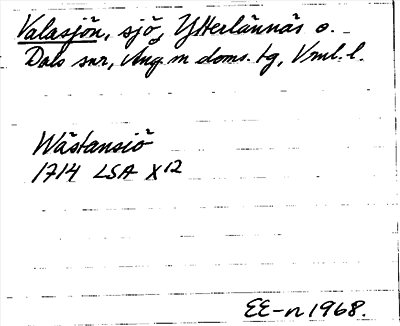 Valasjön, sjö, Ytterlännäs o.
Dals snr, Ång. m doms. tg, Vrml. l.
Wästansiö
1714 LSA X12
EE-n 1968.